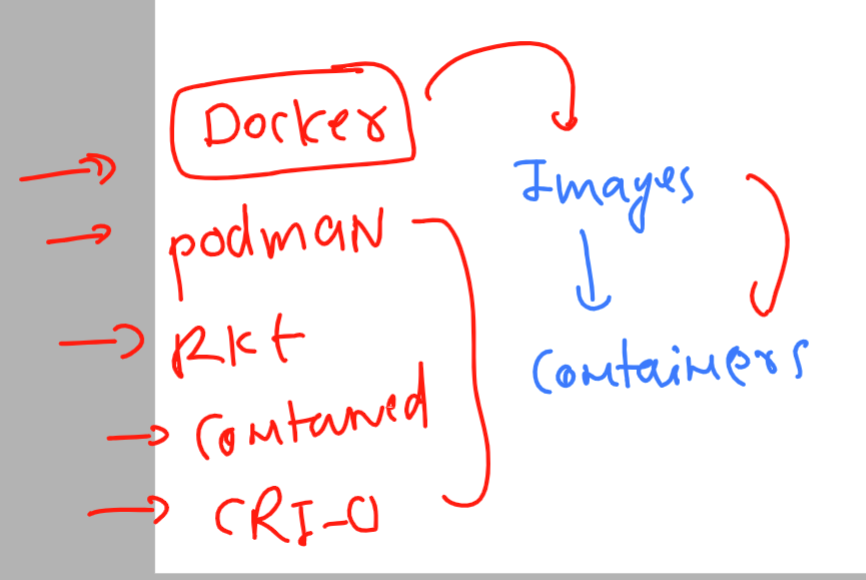 Docker
podman
Rkt
Contaned
CRI-O
Images
Containers